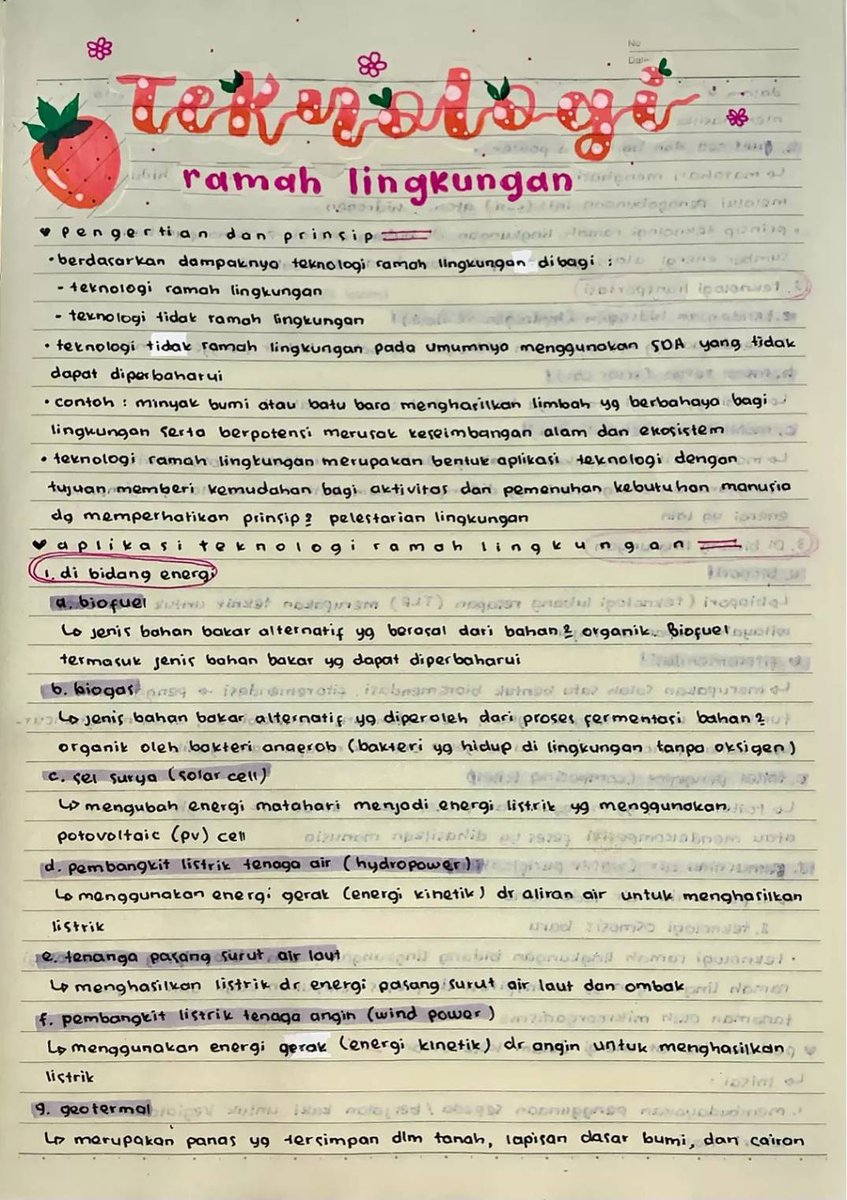 No
Date
Teknologi
ramah lingkungan
♥ pengertian dan prinsip
• berdasarkan dampaknya teknologi ramah lingkungan dibagi :
- teknologi ramah lingkungan
- teknologi tidak ramah lingkungan
• teknologi tidak ramah lingkungan pada umumnya menggunakan SDA yang tidak
dapat diperbaharui
• contoh : minyak bumi atau batu bara menghasilkan limbah yg berbahaya bagi
lingkungan serta berpotensi merusak keseimbangan alam dan ekosistem
• teknologi ramah lingkungan merupakan bentuk aplikasi teknologi dengan
tujuan memberi kemudahan bagi aktivitas dan pemenuhan kebutuhan manusia
dg memperhatikan prinsip2 pelestarian lingkungan
♥ aplikasi teknologi ramah lingkungan
1. di bidang energi
a. biofuel
↳ jenis bahan bakar alternatif yg berasal dari bahan2 organik. Biofuel
termasuk jenis bahan bakar yg dapat diperbaharui
b. biogas
↳ jenis bahan bakar alternatif yg diperoleh dari proses fermentasi bahan2
organik oleh bakteri anaerob (bakteri yg hidup di lingkungan tanpa oksigen)
c. sel surya (solar cell)
↳ mengubah energi matahari menjadi energi listrik yg menggunakan
potovoltaic (pv) cell
d. pembangkit listrik tenaga air (hydropower)
↳ menggunakan energi gerak (energi kinetik) dr aliran air untuk menghasilkan
listrik
e. tenanga pasang surut air laut
↳ menghasilkan listrik dr energi pasang surut air laut dan ombak
f. pembangkit listrik tenaga angin (wind power)
↳ menggunakan energi gerak (energi kinetik) dr angin untuk menghasilkan
listrik
g. geotermal
↳ merupakan panas yg tersimpan dlm tanah, lapisan dasar bumi, dan cairan